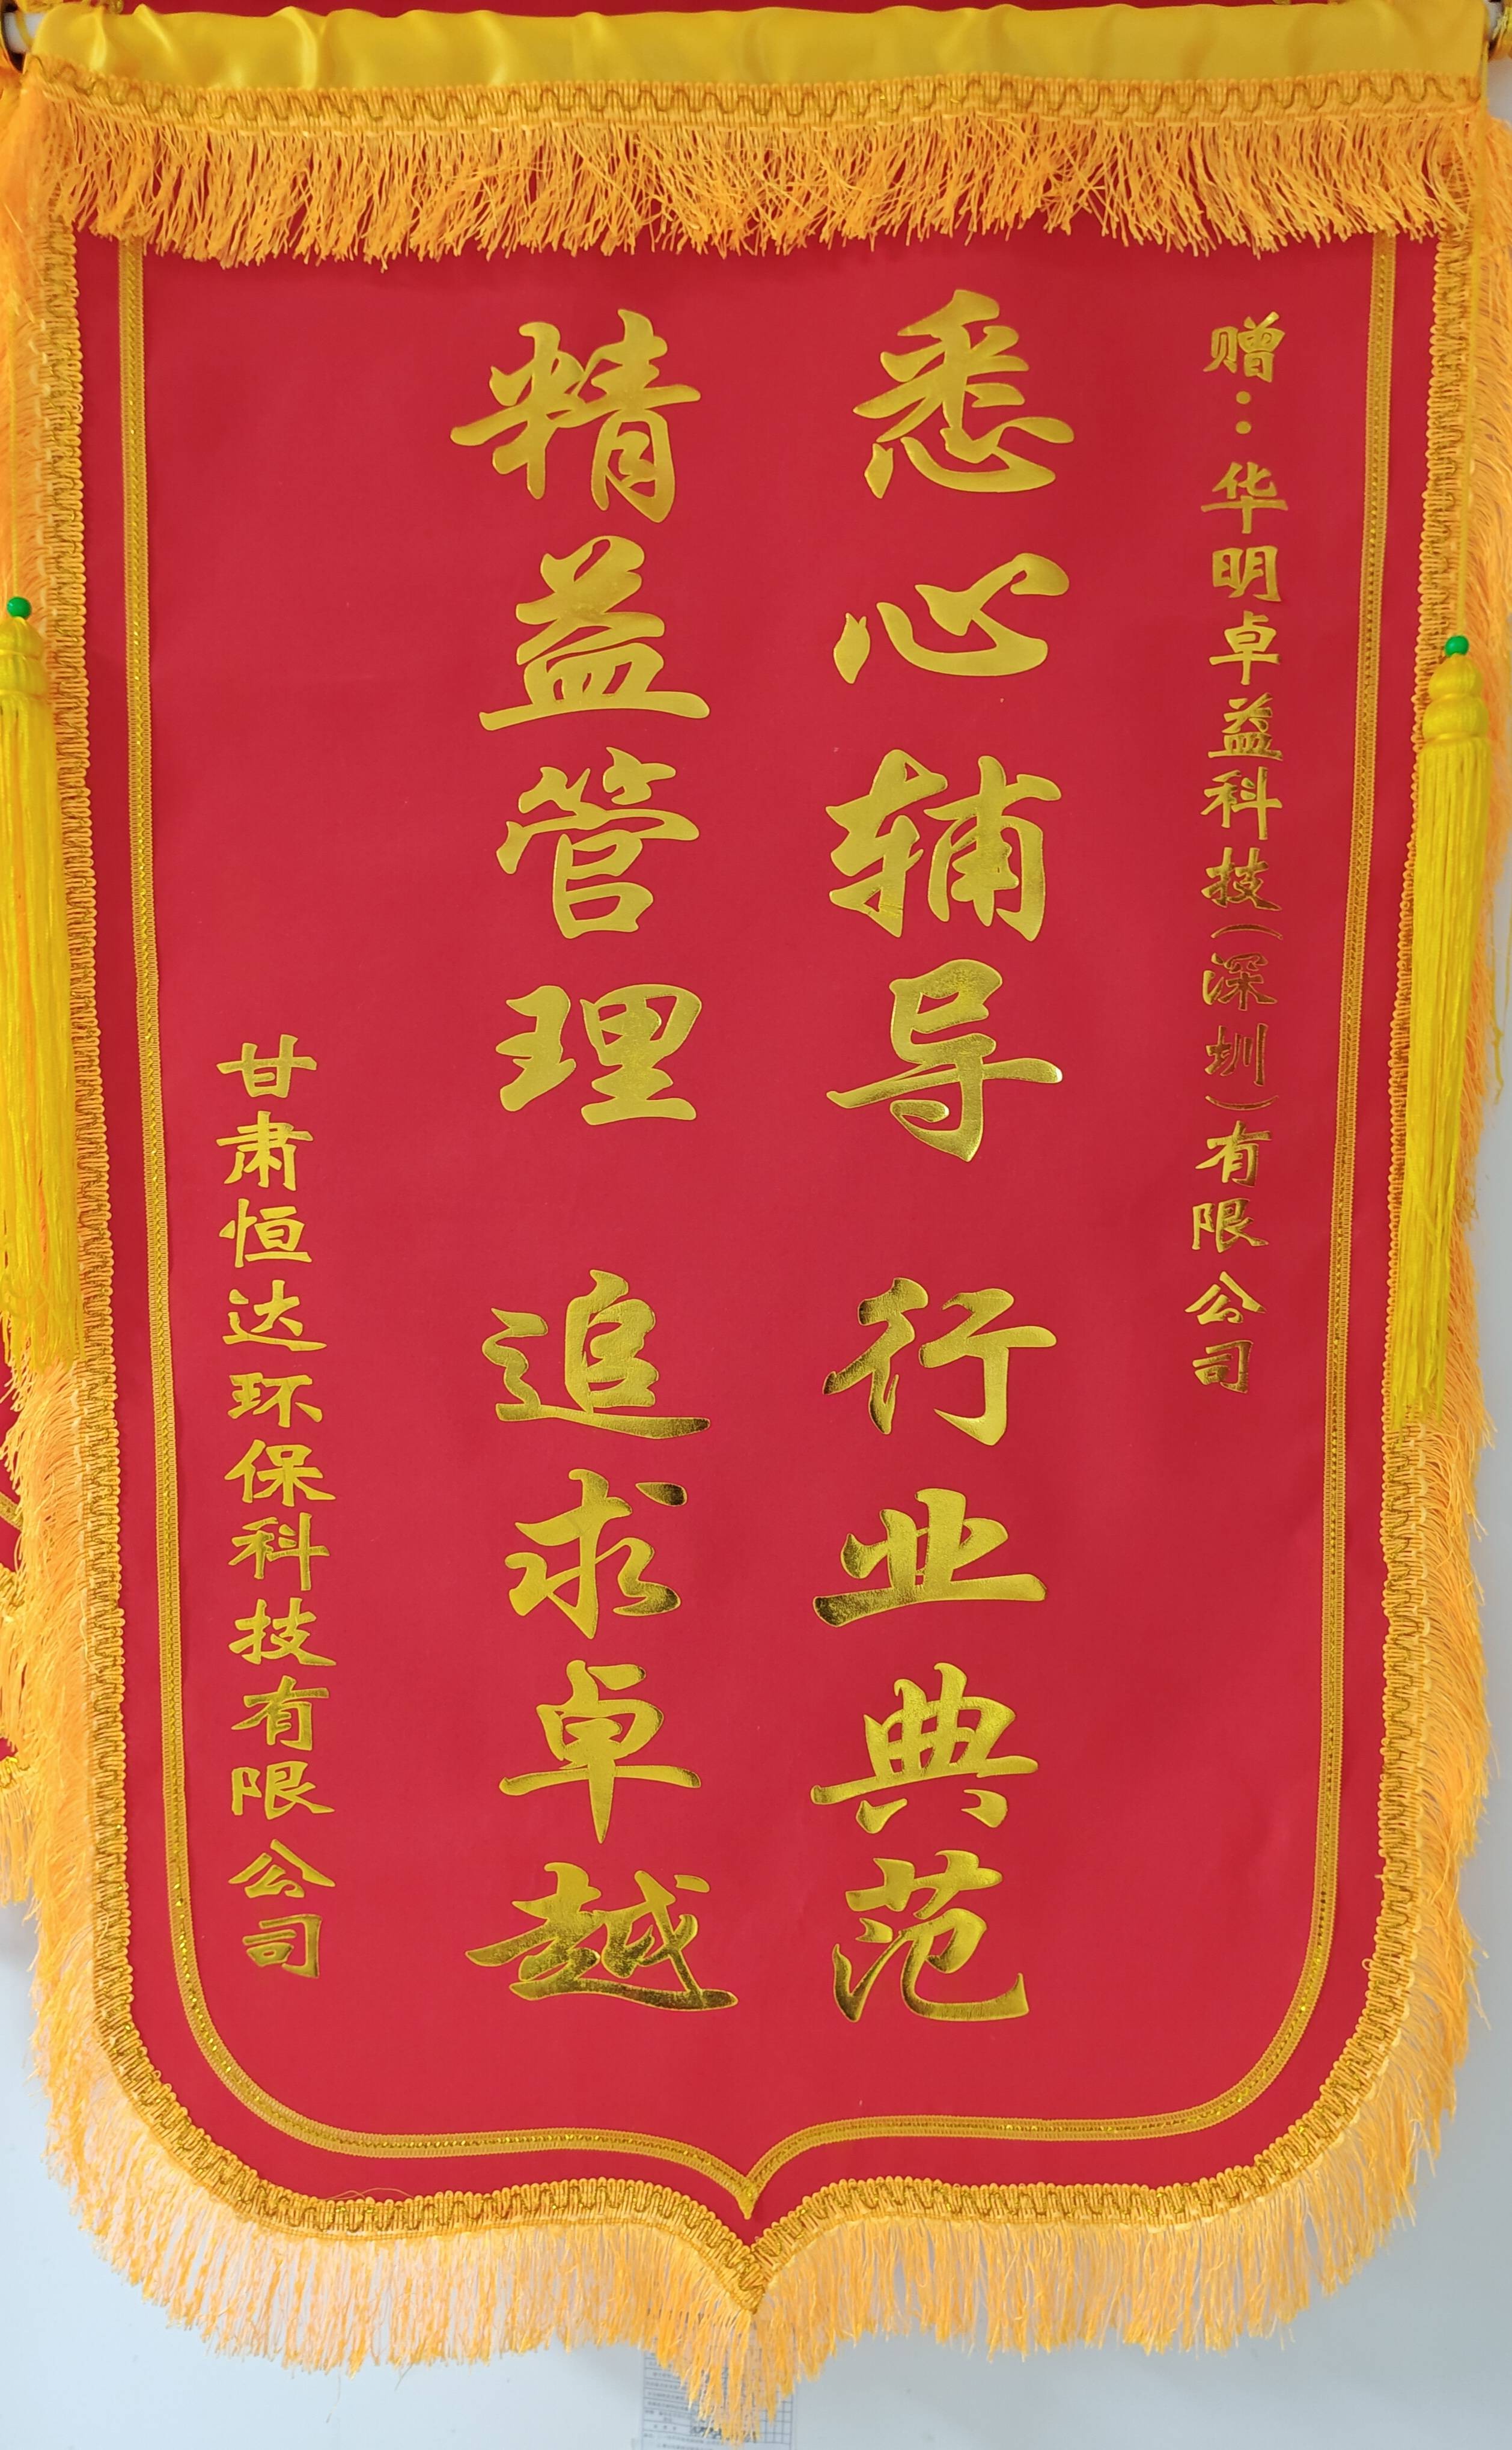 赠：华明卓益科技(深圳)有限公司
悉心辅导 行业典范
精益管理 追求卓越
甘肃恒达环保科技有限公司